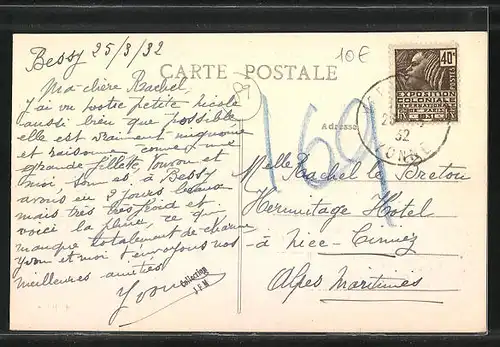 Bessy 25/3/32
10€
Ma chère Rachel,
CARTE POSTALE
J'ai vu votre petite Nicole
aussi bien que possible
elle est vraiment mignonne
et raisonne comme une
grande fillette
moi, à Bessy
avons eu 2 jours
mais très très froid et
voici la pluie, ce qui
manque totalement de charme
Yvon et moi envoyons nos
meilleures amitiés
Yvonne
Collection
J.F.M
89
169
Adresse
Melle Rachel le Breton
Hermitage Hotel
à Nice-Cimiez
Alpes Maritimes
40c
POSTES
EXPOSITION
COLONIALE
INTERNATIONALE
DE PARIS
1931
32
YONNE